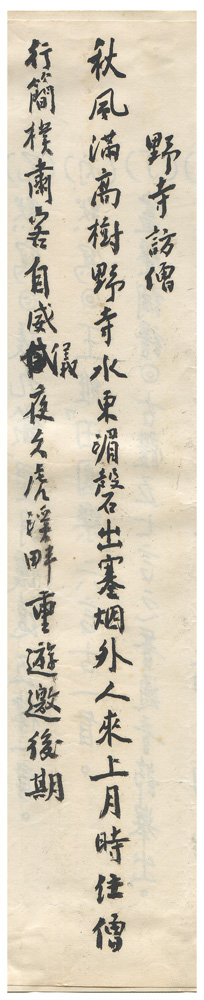 野寺訪僧
秋風滿高樹野寺水東湄磬出寒烟外人來上月時住僧
行簡樸肅客自威儀夜久虎溪畔重遊邀後期